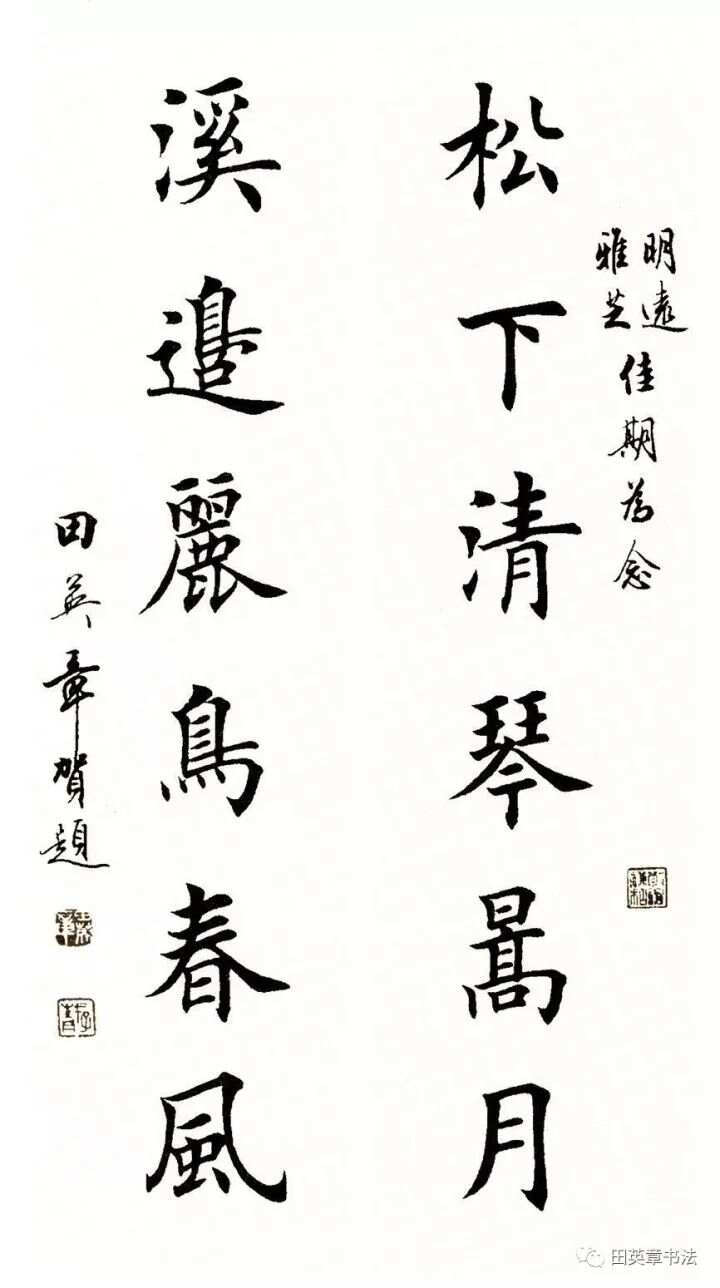 明遠
雅芝
佳期為念
松下清琴暠月
溪邉麗鳥春風
田英章賀題
田英章书法